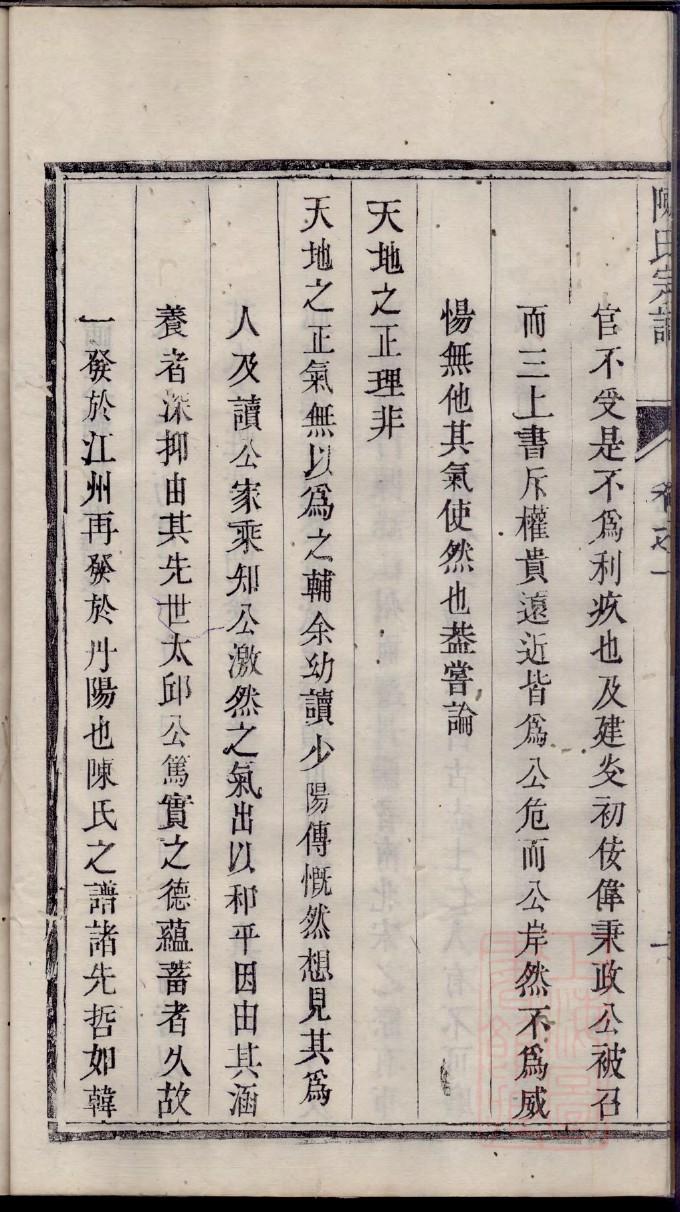 陳氏宗譜
卷之一
官不受是不爲利疚也及建炎初伎偉秉政公被召
而三上書斥權貴遠近皆爲公危而公岸然不爲威
惕無他其氣使然也葢嘗論
天地之正理非
天地之正氣無以爲之輔余幼讀少陽傳慨然想見其爲
人及讀公家乘知公激然之氣出以和平因由其涵
養者深抑由其先世太邱公篤實之德蘊蓄者久故
一發於江州再發於丹陽也陳氏之譜諸先哲如韓